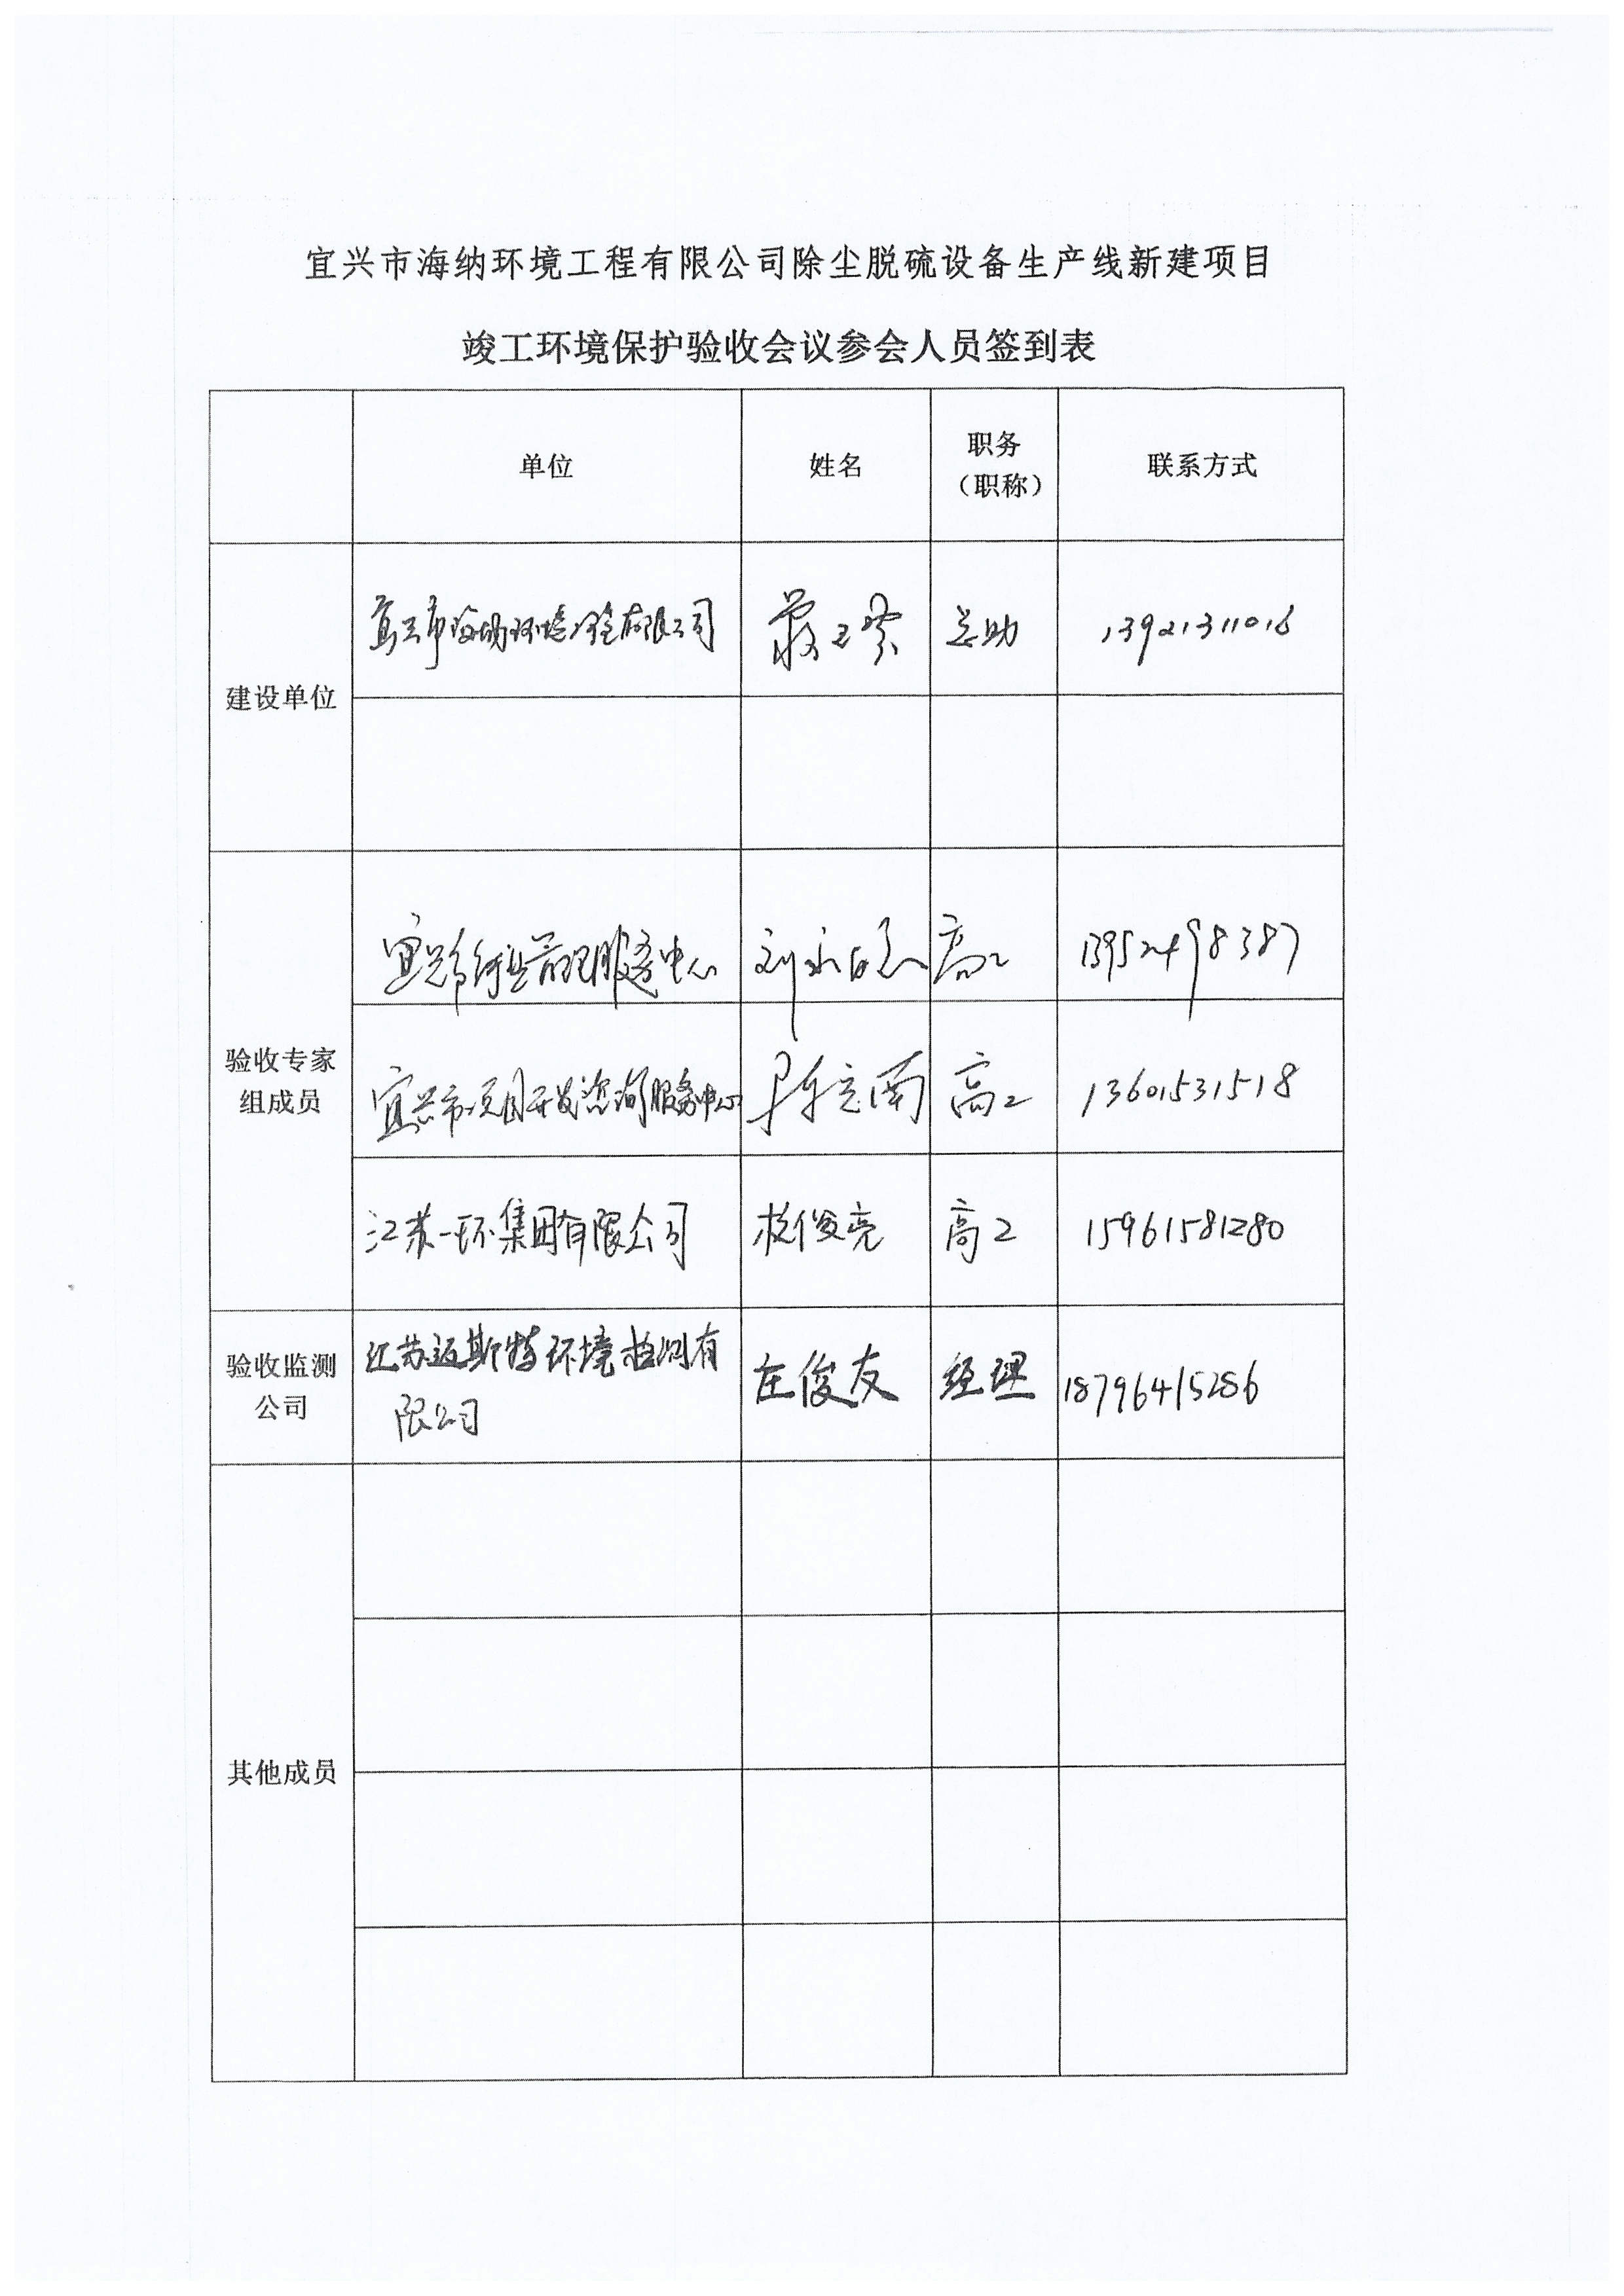 宜兴市海纳环境工程有限公司除尘脱硫设备生产线新建项目
竣工环境保护验收会议参会人员签到表
单位 姓名 职务（职称） 联系方式
建设单位
宜兴市海纳环境工程有限公司 总助 13921311016
验收专家组成员
宜兴市 管理服务中心 高工 13952498387
宜兴市项目开发咨询服务中心 高工 13601531518
江苏一环集团有限公司 俊亮 高工 15961581280
验收监测公司
江苏迈斯特环境检测有
限公司
庄俊友 经理 18796415286
其他成员